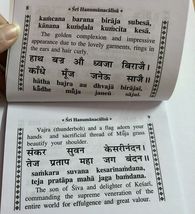 8 Śrī Hanumānacālīsā
kaṁcana barana birāja subesā,
kānana kuṁḍala kuṁcita kesā.
The golden complexion and impressive
appearance to the lovely garments, rings in
the ears and hair curly.
हाथ बज्र औ ध्वजा बिराजै।
काँधे मूँज जनेऊ साजै।।
hātha bajra au dhvajā birājai,
kādhe mūja janeū sājai.
Śrī Hanumānacālīsā
Vajra (thunderbolt) and a flag adorn your
hands and sacrificial thread of Mūja grass
beautify your shoulder.
संकर सुवन केसरीनंदन।
तेज प्रताप महा जग बंदन।।
saṁkara suvana kesarīnaṁdana,
teja pratāpa mahā jaga baṁdana.
The son of Śiva and delighter of Kesarī,
commanding the supreme veneration of the
entire world for effulgence and great valour.